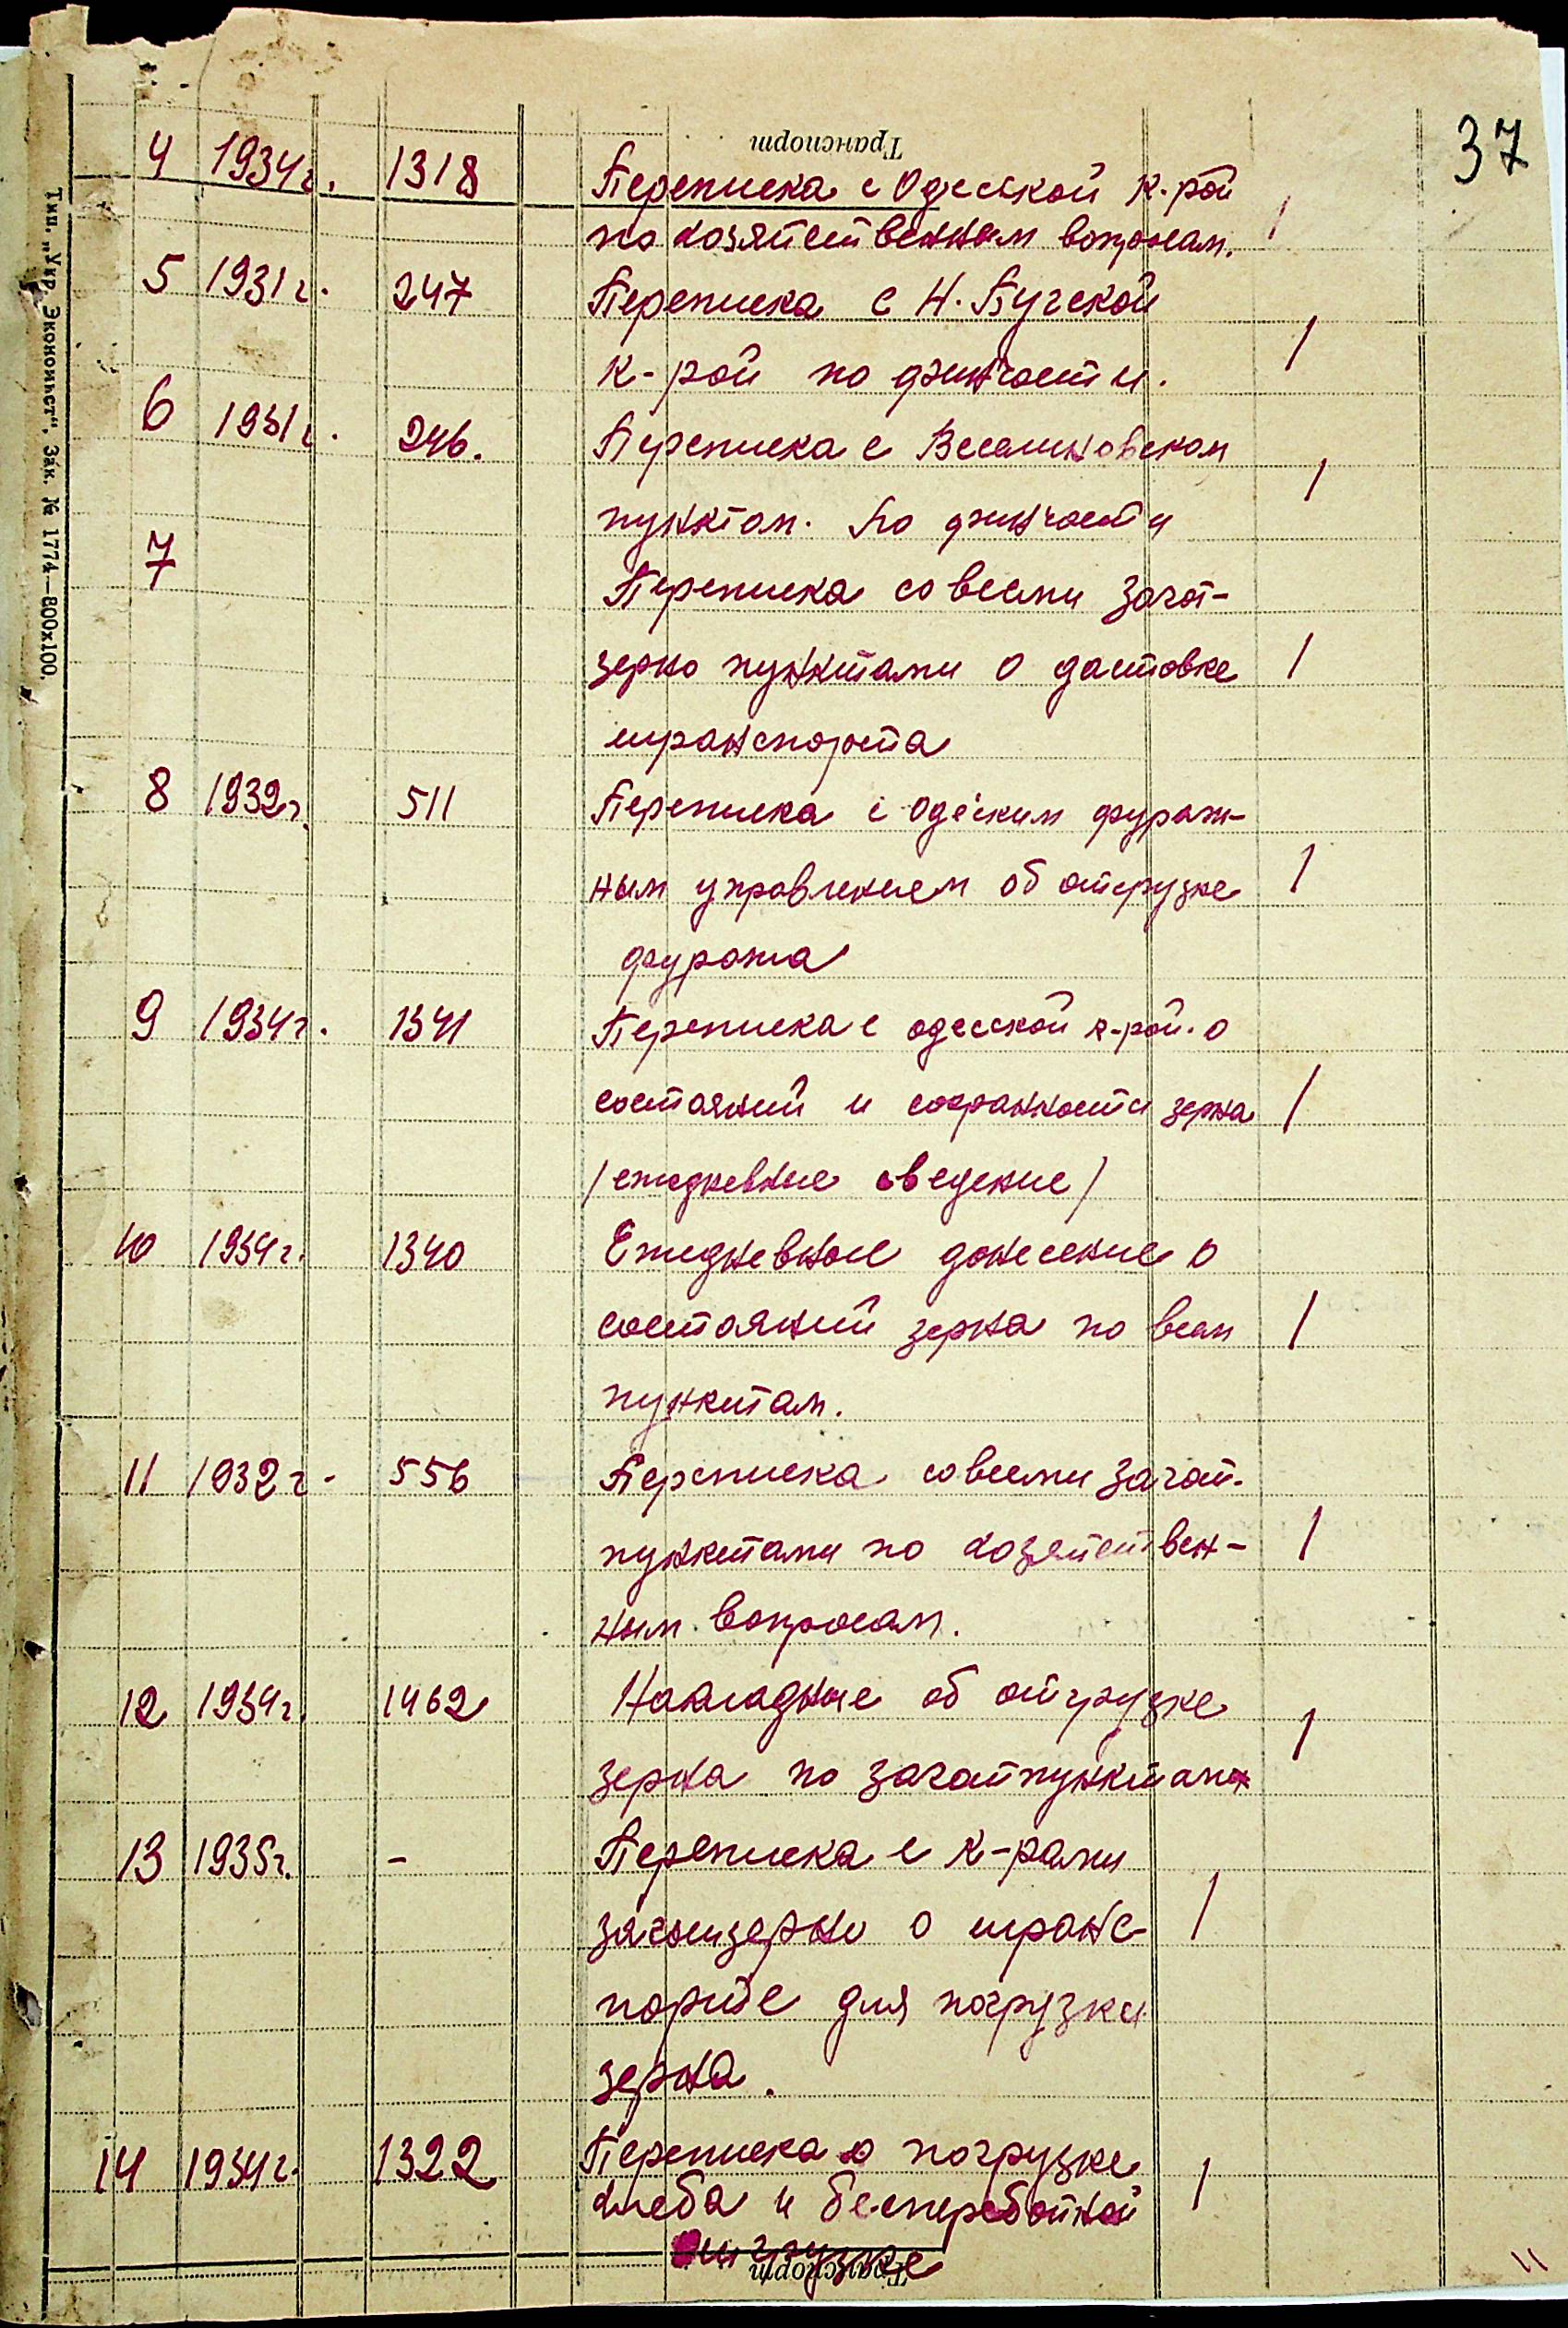 37
Транспорт
4 1934г. 1318 Переписка с Одесской к-рой
по хозяйственным вопросам. /
5 1931г. 247 Переписка с Н. Бугской
к-рой по отчетности. /
6 1931г. 246. Переписка с Веселиновским
пунктом. По отчетности /
7 Переписка со всеми загот-
зерно пунктами о доставке /
транспорта
8 1932г. 511 Переписка с Одеским фураж-
ным управлением об отгрузке /
фуража
9 1934г. 1341 Переписка с одесской к-рой о
состояний и сохранности зерна /
/ежедневные сведение/
10 1934г. 1340 Ежедневные донесение о
состояний зерна по всем /
пунктам.
11 1932г. 556 Переписка со всеми загот.
пунктами по хозяйствен- /
ным вопросам.
12 1934г. 1462 Накладные об отгрузке
зерна по заготпунктам /
13 1935г. - Переписка с к-рами
заготзерно о транс- /
порте для погрузки
зерна.
14 1934г. 1322 Переписка о погрузке
хлеба и бесперебойной /
отгрузке
Транспорт
Тип. „Укр. Экономист". Зак. № 1774—800х100.